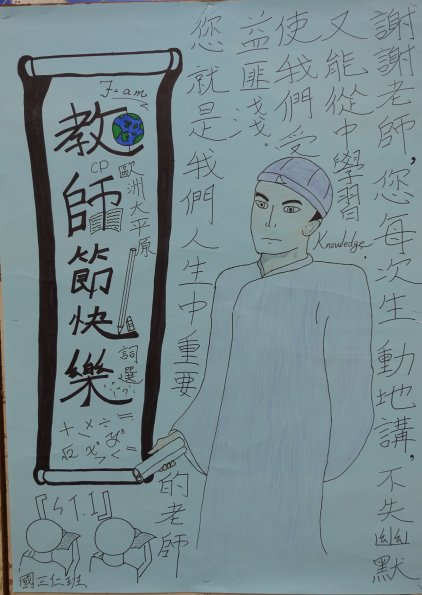 謝謝老師,您每次生動地講,不失幽默
又能從中學習
使我們受
益匪戈戈。
您就是我們人生中重要的老師
Knowledge
F=am
教師節快樂
CP
歐洲大平原
詞選
+ × ÷ =
國三仁班